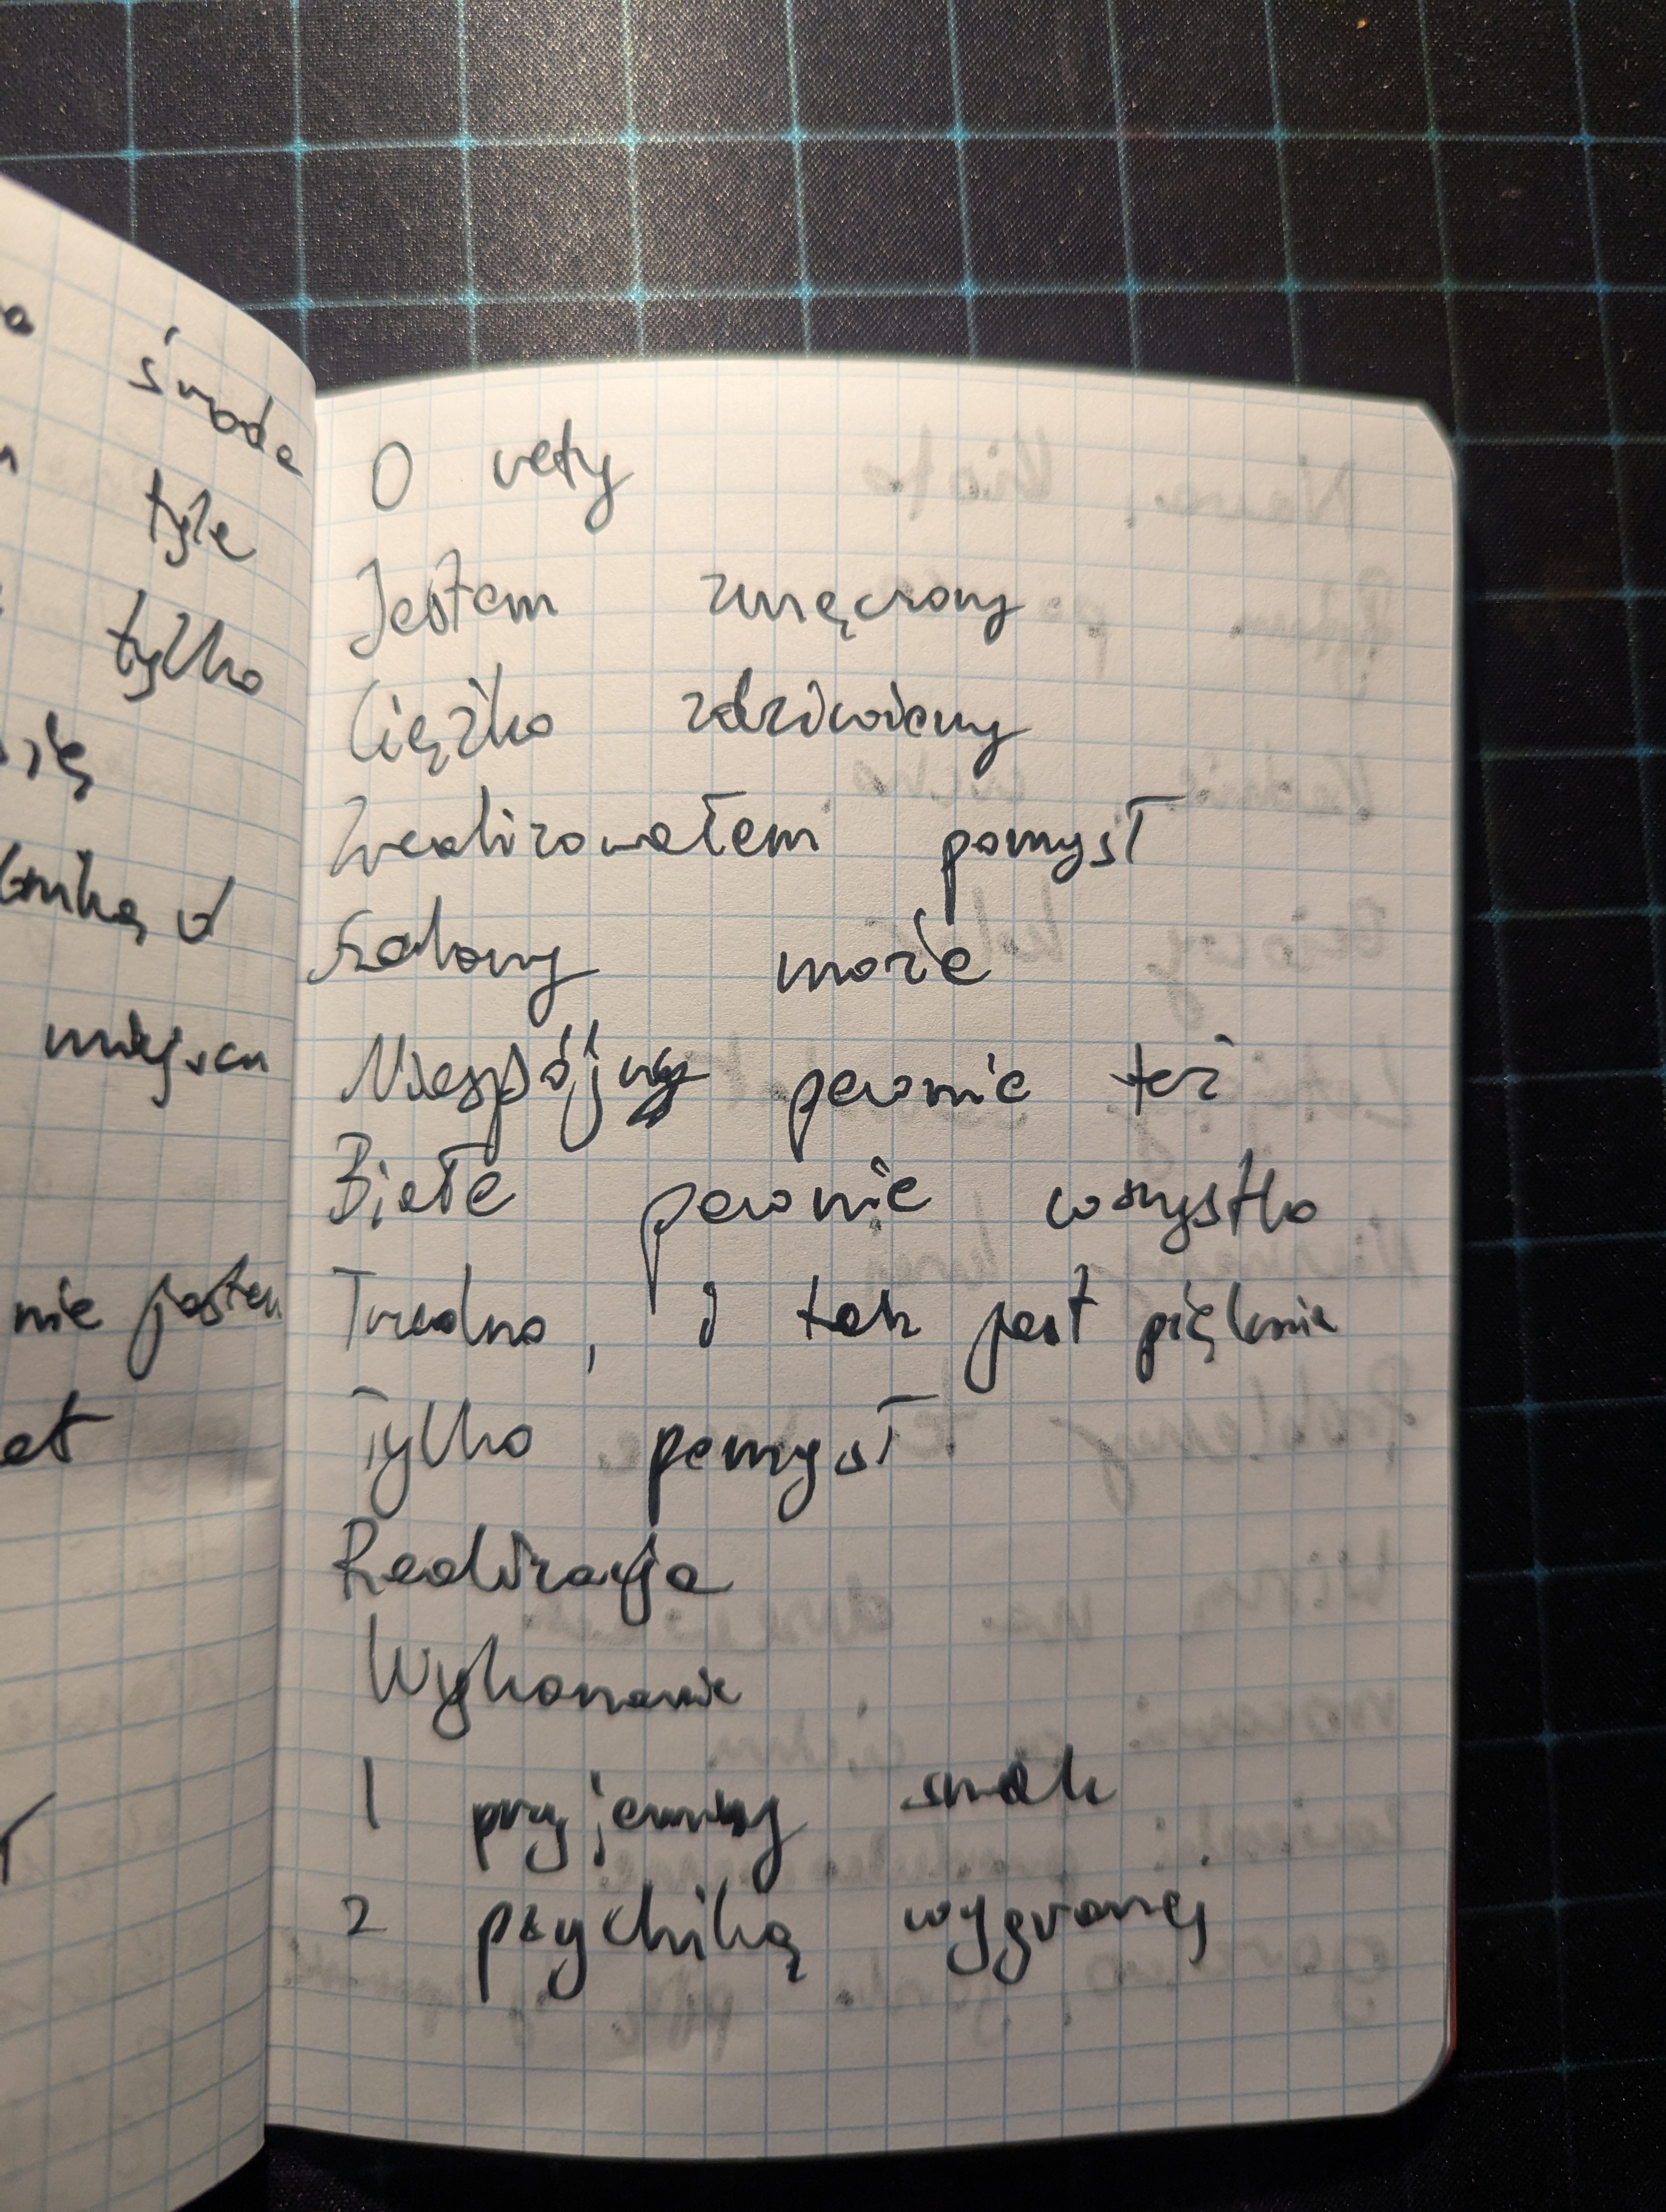 środa
tyle
tylko
się
miejscu
nie jestem
O rety
Jestem zmęczony
Ciężko zdziwiony
Zrealizowałem pomysł
Szalony może
Niespójny pewnie też
Białe pewnie wszystko
Trudno, I tak jest pięknie
Tylko pomysł
Realizacja
Wykonanie
1 przyjemny smak
2 psychiką wygranej